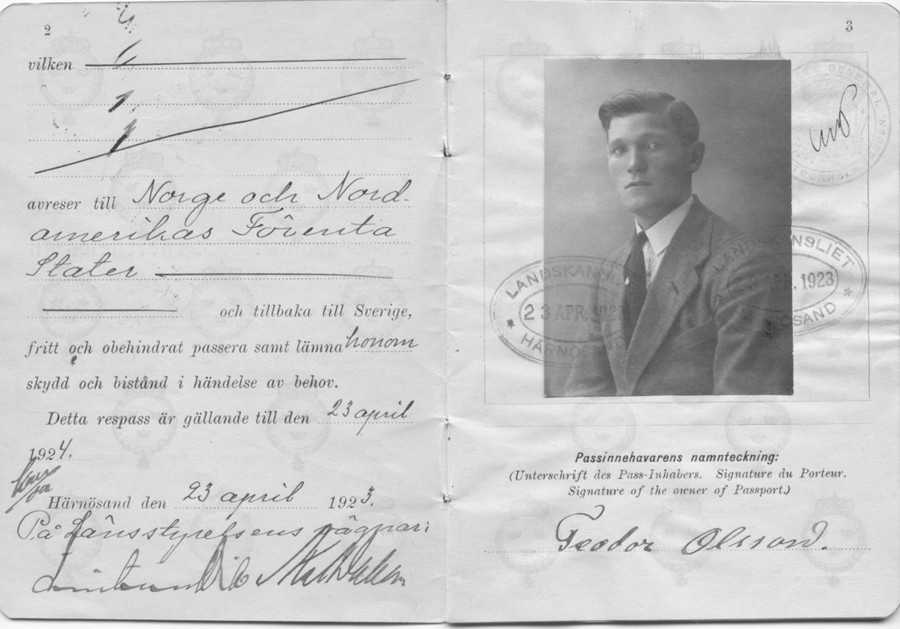 2
vilken
avreser till Norge och Nord-
amerikas Förenta
Stater
och tillbaka till Sverige,
fritt och obehindrat passera samt lämna honom
skydd och bistånd i händelse av behov.
Detta respass är gällande till den 23 april
1924.
Härnösand den 23 april 1923.
På Länsstyrelsens vägnar:
3
LANDSKANSLIET
23 APR. 1923
HÄRNÖSAND
LANDSKANSLIET
APR. 1923
HÄRNÖSAND
Passinnehavarens namnteckning:
(Unterschrift des Pass-Inhabers. Signature du Porteur.
Signature of the owner of Passport.)
Teodor Olsson.